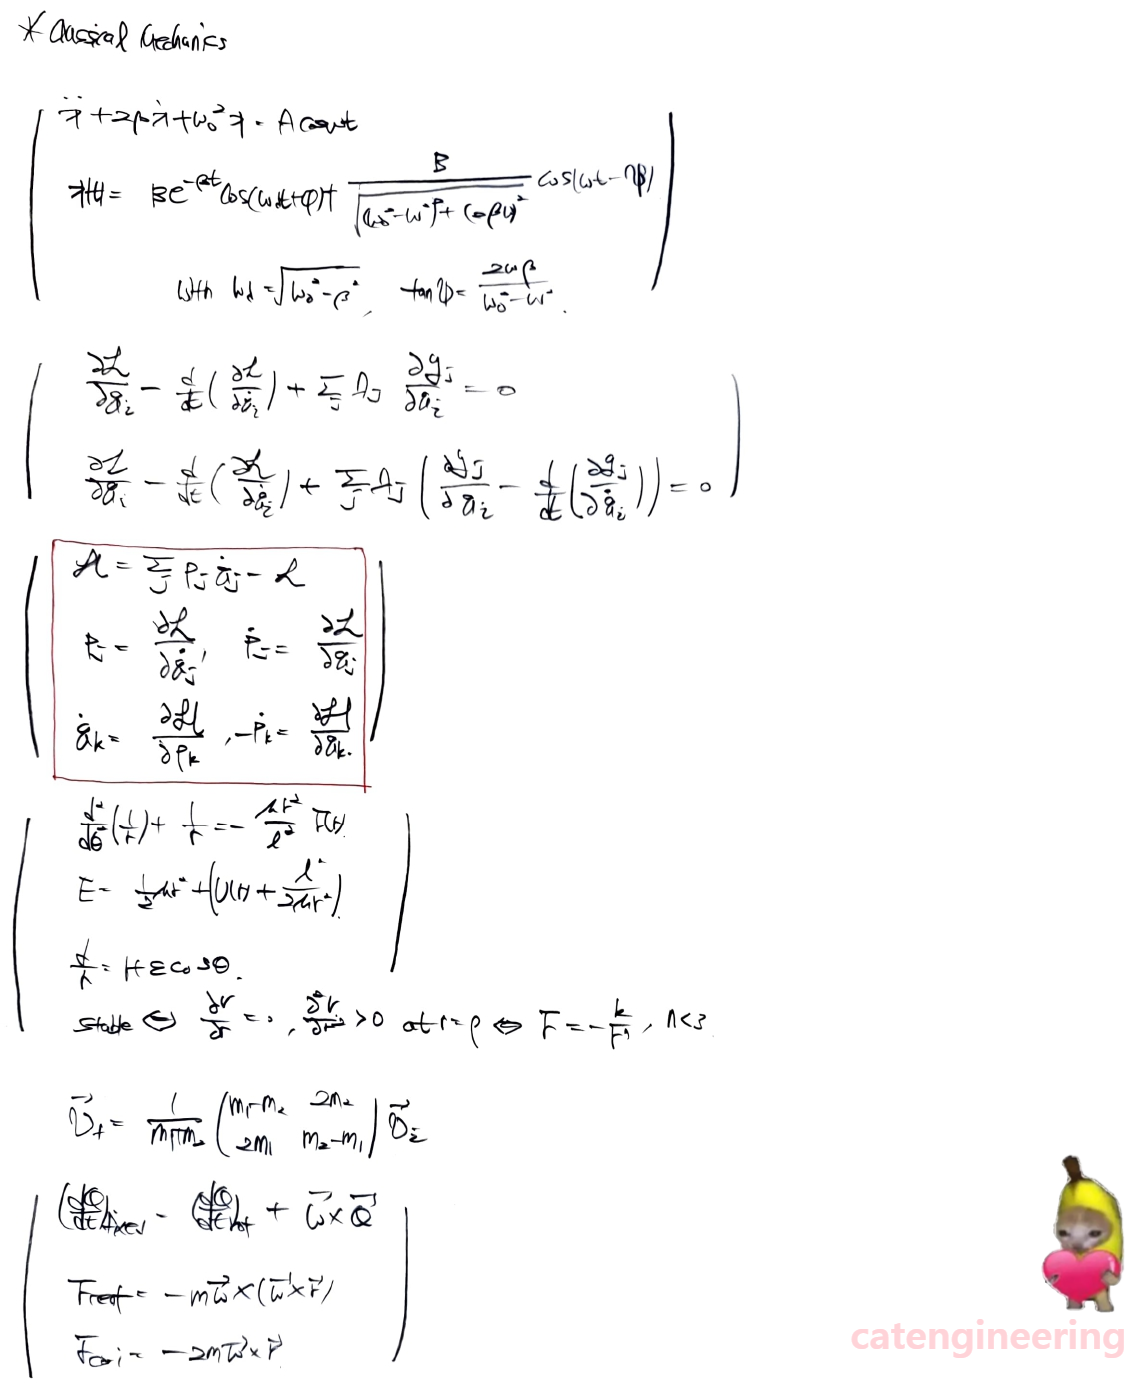 * Classical Mechanics
ẍ + 2βẋ + ω₀²x = A cos ωt
x(t) = Be^{-βt} cos(ω_d t + φ) + B/√((ω₀² - ω²)² + (2βω)²) cos(ωt - ψ)
with ω_d = √(ω₀² - β²), tan ψ = 2ωβ/(ω₀² - ω²).
∂ℒ/∂q_i - d/dt(∂ℒ/∂q̇_i) + Σ_j λ_j ∂g_j/∂q_i = 0
∂ℒ/∂q_i - d/dt(∂ℒ/∂q̇_i) + Σ_j λ_j (∂g_j/∂q_i - d/dt(∂g_j/∂q̇_i)) = 0
ℋ = Σ_j p_j q̇_j - ℒ
p_j = ∂ℒ/∂q̇_j, ṗ_j = ∂ℒ/∂q_j
q̇_k = ∂ℋ/∂p_k, -ṗ_k = ∂ℋ/∂q_k.
d²/dθ²(1/r) + 1/r = - μr²/l² F(r).
E = ½μṙ² + (U(r) + l²/2μr²).
α/r = 1 + ε cos θ.
stable ⇔ ∂V/∂r = 0, ∂²V/∂r² > 0 at r = ρ ⇔ F = -k/rⁿ, n < 3.
v⃗_f = 1/(m₁+m₂) (m₁-m₂ 2m₂ ; 2m₁ m₂-m₁) v⃗_i
(dQ/dt)_fixed = (dQ/dt)_rot + ω⃗ × Q⃗
F_cent = -mω⃗ × (ω⃗ × r⃗)
F_cori = -2mω⃗ × ṙ⃗
catengineering